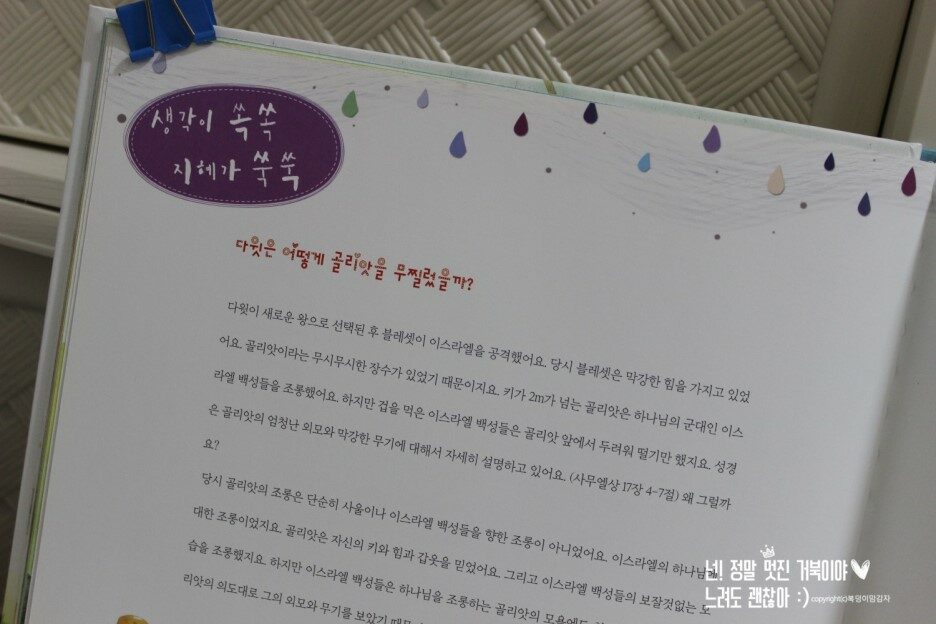 생각이 쏙쏙
지혜가 쑥쑥
다윗은 어떻게 골리앗을 무찔렀을까?
다윗이 새로운 왕으로 선택된 후 블레셋이 이스라엘을 공격했어요. 당시 블레셋은 막강한 힘을 가지고 있었
어요. 골리앗이라는 무시무시한 장수가 있었기 때문이지요. 키가 2m가 넘는 골리앗은 하나님의 군대인 이스
라엘 백성들을 조롱했어요. 하지만 겁을 먹은 이스라엘 백성들은 골리앗 앞에서 두려워 떨기만 했지요. 성경
은 골리앗의 엄청난 외모와 막강한 무기에 대해서 자세히 설명하고 있어요. (사무엘상 17장 4-7절) 왜 그럴까
요?
당시 골리앗의 조롱은 단순히 사울이나 이스라엘 백성들을 향한 조롱이 아니었어요. 이스라엘의 하나님에
대한 조롱이었지요. 골리앗은 자신의 키와 힘과 갑옷을 믿었어요. 그리고 이스라엘 백성들의 보잘것없는 모
습을 조롱했지요. 하지만 이스라엘 백성들은 하나님을 조롱하는 골리앗의 모욕에도
리앗의 의도대로 그의 외모와 무기를 보았기 때문
넌 정말 멋진 거북이야
느려도 괜찮아 :) copyright(c)복덩이맘감자